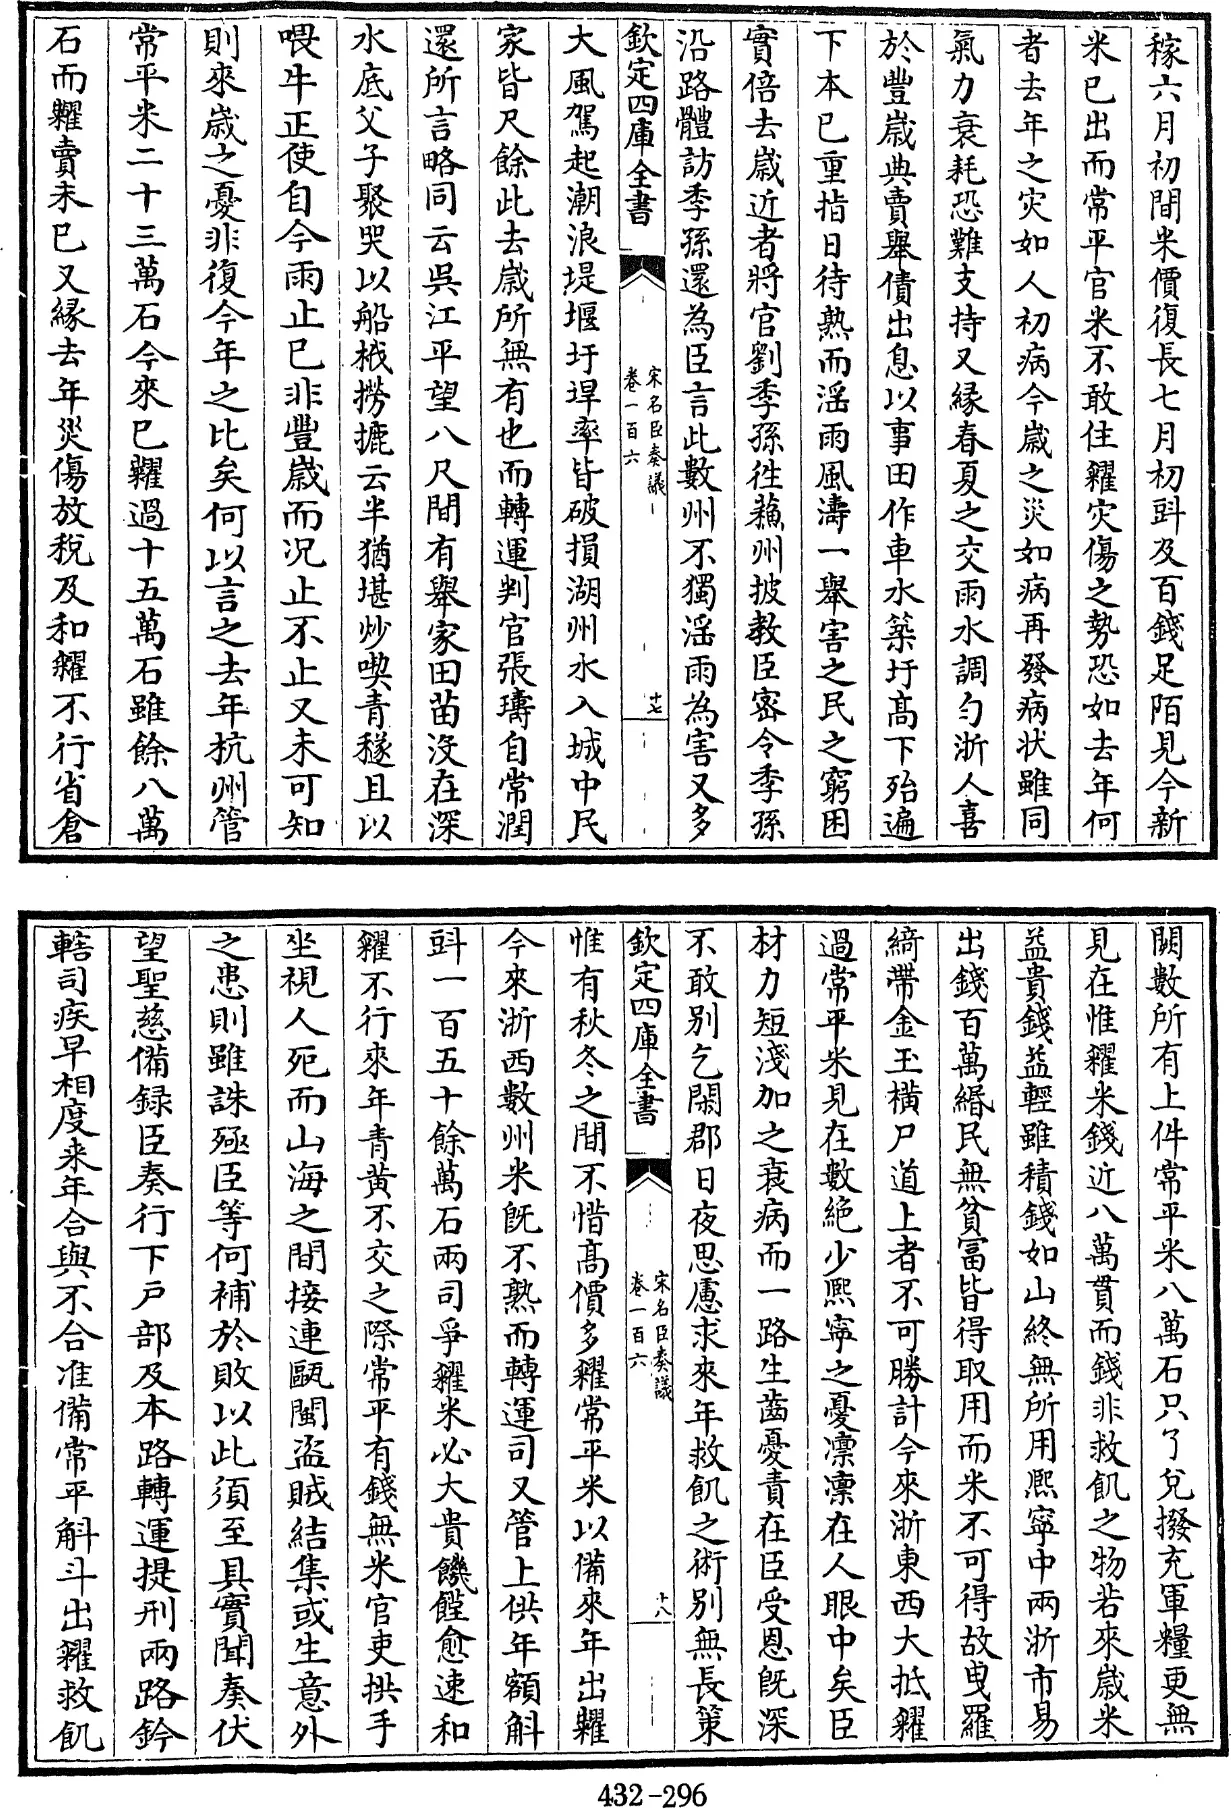 稼六月初間米價復長七月初㪷及百錢足陌見今新
米已出而常平官米不敢住糶灾傷之勢恐如去年何
者去年之灾如人初病今歳之災如病再發病状雖同
氣力衰耗恐難支持又縁春夏之交雨水調勻浙人喜
於豐歳典賣舉債出息以事田作車水築圩髙下殆遍
下本已重指日待熟而滛雨風濤一舉害之民之窮困
實倍去歳近者將官劉季孫徃蘓州披教臣宻令季孫
沿路體訪季孫還為臣言此數州不獨滛雨為害又多
欽定四庫全書
宋名臣奏議
卷一百六
十七
大風駕起潮浪堤堰圩垾率皆破損湖州水入城中民
家皆尺餘此去歳所無有也而轉運判官張璹自常潤
還所言略同云吳江平望八尺間有舉家田苗沒在深
水底父子聚哭以船栰撈摝云半猶堪炒喫青穟且以
喂牛正使自今雨止已非豐歳而况止不止又未可知
則來歳之憂非復今年之比矣何以言之去年杭州管
常平米二十三萬石今來已糶過十五萬石雖餘八萬
石而糶賣未已又縁去年災傷放税及和糴不行省倉
闕數所有上件常平米八萬石只了兌撥充軍糧更無
見在惟糴米錢近八萬貫而錢非救飢之物若來歳米
益貴錢益輕雖積錢如山終無所用熙寜中兩浙市易
出錢百萬緡民無貧富皆得取用而米不可得故曵羅
綺帶金玉橫尸道上者不可勝計今來浙東西大抵糴
過常平米見在數絶少熙寜之憂凛凛在人眼中矣臣
材力短淺加之衰病而一路生齒憂責在臣受恩旣深
不敢别乞閑郡日夜思慮求來年救飢之術别無長策
欽定四庫全書
宋名臣奏議
卷一百六
十八
惟有秋冬之間不惜髙價多糴常平米以備來年出糶
今來浙西數州米旣不熟而轉運司又管上供年額斛
㪷一百五十餘萬石兩司爭糴米必大貴饑饉愈速和
糴不行來年青黄不交之際常平有錢無米官吏拱手
坐視人死而山海之間接連甌閩盗賊結集或生意外
之患則雖誅殛臣等何補於敗以此須至具實聞奏伏
望聖慈備録臣奏行下戸部及本路轉運提刑兩路鈐
轄司疾早相度来年合與不合准備常平斛斗出糶救飢
432-296